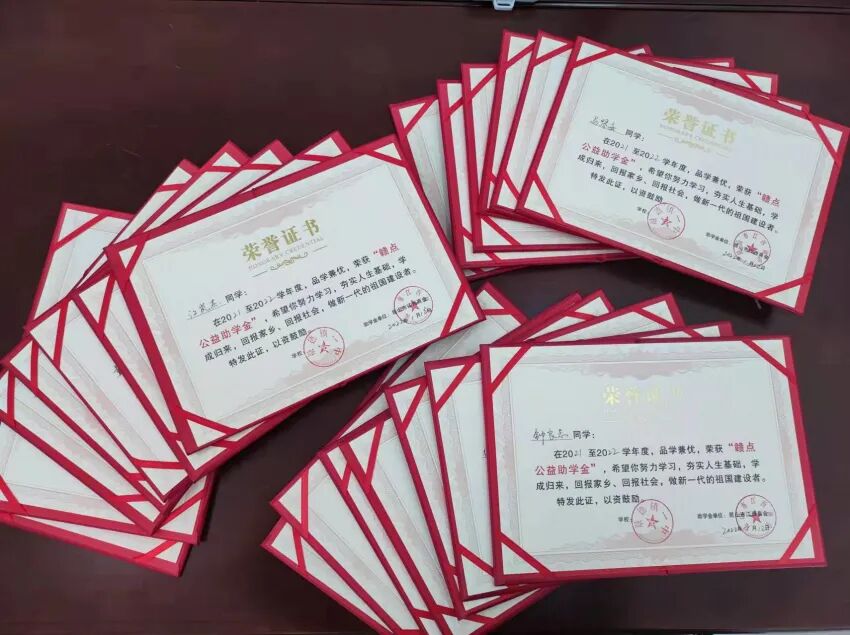 荣誉证书
HONORARY CREDENTIAL
同学：
在2021至2022学年度，品学兼优，荣获“赣点
公益助学金”，希望你努力学习，夯实人生基础，学
成归来，回报家乡、回报社会，做新一代的祖国建设者。
特发此证，以资鼓励。
学校：
助学金单位：
荣誉证书
HONORARY CREDENTIAL
同学：
在2021至2022学年度，品学兼优，荣获“赣点
公益助学金”，希望你努力学习，夯实人生基础，学
成归来，回报家乡、回报社会，做新一代的祖国建设者。
特发此证，以资鼓励。
学校：
助学金单位：
荣誉证书
同学：
在2021至2022学年度，品学兼优，荣获“赣点
公益助学金”，希望你努力学习，夯实人生基础，学
成归来，回报家乡、回报社会，做新一代的祖国建设者。
特发此证，以资鼓励。
学校：
助学金单位：